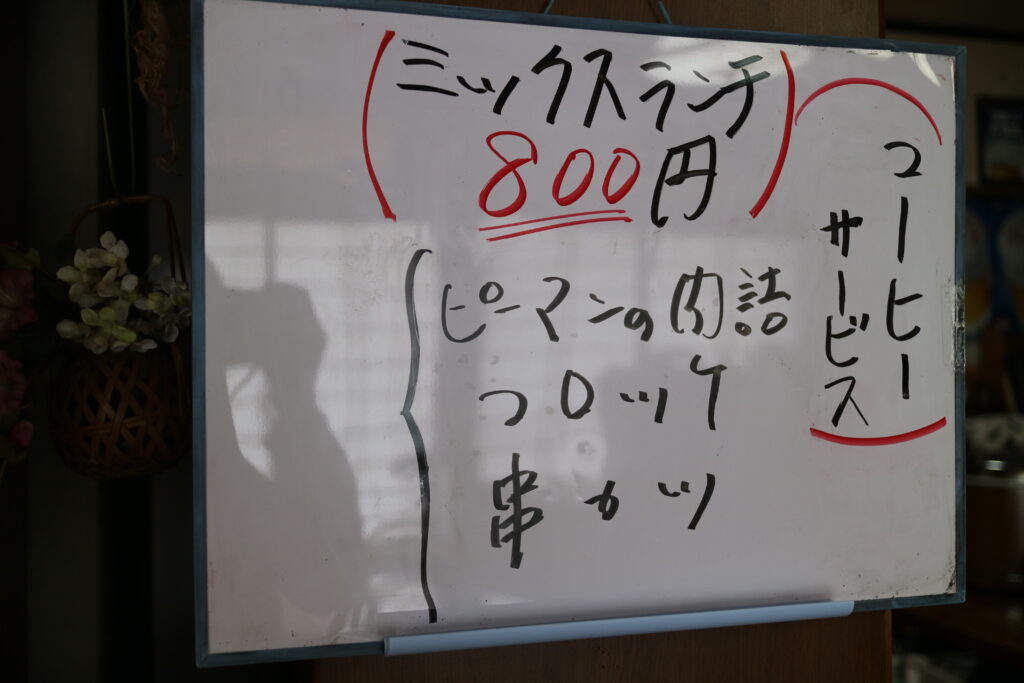 ミックスランチ
800円
ピーマンの肉詰
コロッケ
串カツ
コーヒー
サービス